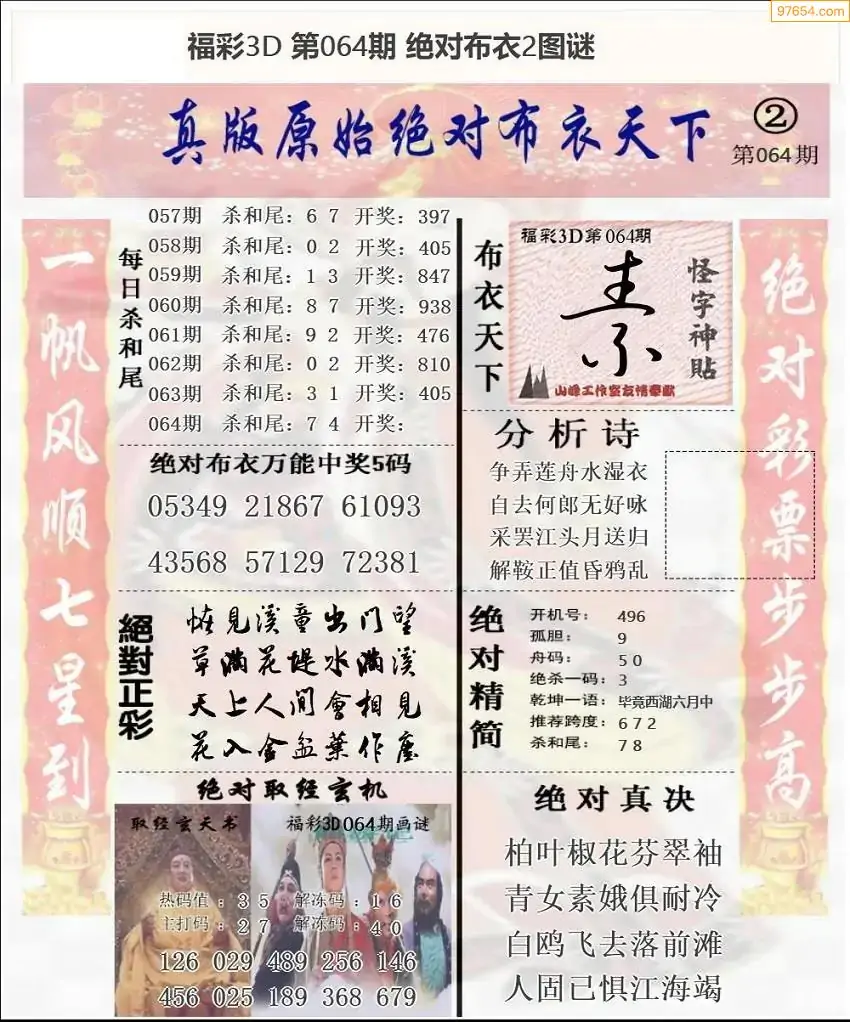 97654.com
福彩3D 第064期 绝对布衣2图谜
真版原始绝对布衣天下
②
第064期
一帆风顺七星到
每日杀和尾
057期 杀和尾：6 7 开奖：397
058期 杀和尾：0 2 开奖：405
059期 杀和尾：1 3 开奖：847
060期 杀和尾：8 7 开奖：938
061期 杀和尾：9 2 开奖：476
062期 杀和尾：0 2 开奖：810
063期 杀和尾：3 1 开奖：405
064期 杀和尾：7 4 开奖：
绝对布衣万能中奖5码
05349 21867 61093
43568 57129 72381
絕對正彩
恠見溪童出门望
草满花堤水满溪
天上人间會相見
花入金盆葉作塵
绝对取经玄机
取经玄天书
福彩3D064期画谜
热码值：3 5 解冻码：1 6
主打码：2 7 解冻码：4 0
126 029 489 256 146
456 025 189 368 679
布衣天下
福彩3D第064期
怪字神贴
山峰工作室友情奉献
分析诗
争弄莲舟水湿衣
自去何郎无好咏
采罢江头月送归
解鞍正值昏鸦乱
绝对精简
开机号： 496
孤胆： 9
舟码： 5 0
绝杀一码：3
乾坤一语：毕竟西湖六月中
推荐跨度：6 7 2
杀和尾： 7 8
绝对真决
柏叶椒花芬翠袖
青女素娥俱耐冷
白鸥飞去落前滩
人固已惧江海竭
绝对彩票步步高